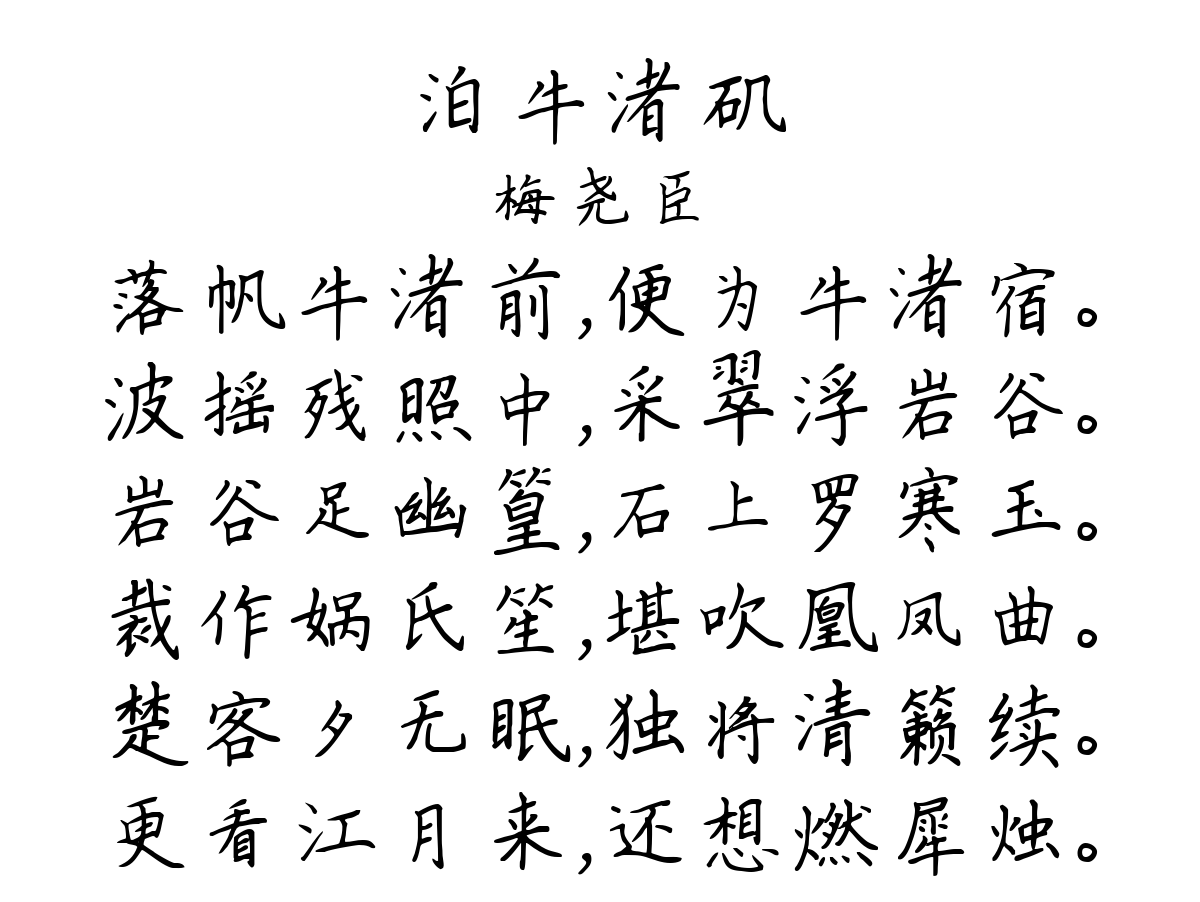 泊牛渚矶
梅尧臣
落帆牛渚前,便为牛渚宿。
波摇残照中,采翠浮岩谷。
岩谷足幽篁,石上罗寒玉。
裁作娲氏笙,堪吹凰凤曲。
楚客夕无眠,独将清籁续。
更看江月来,还想燃犀烛。